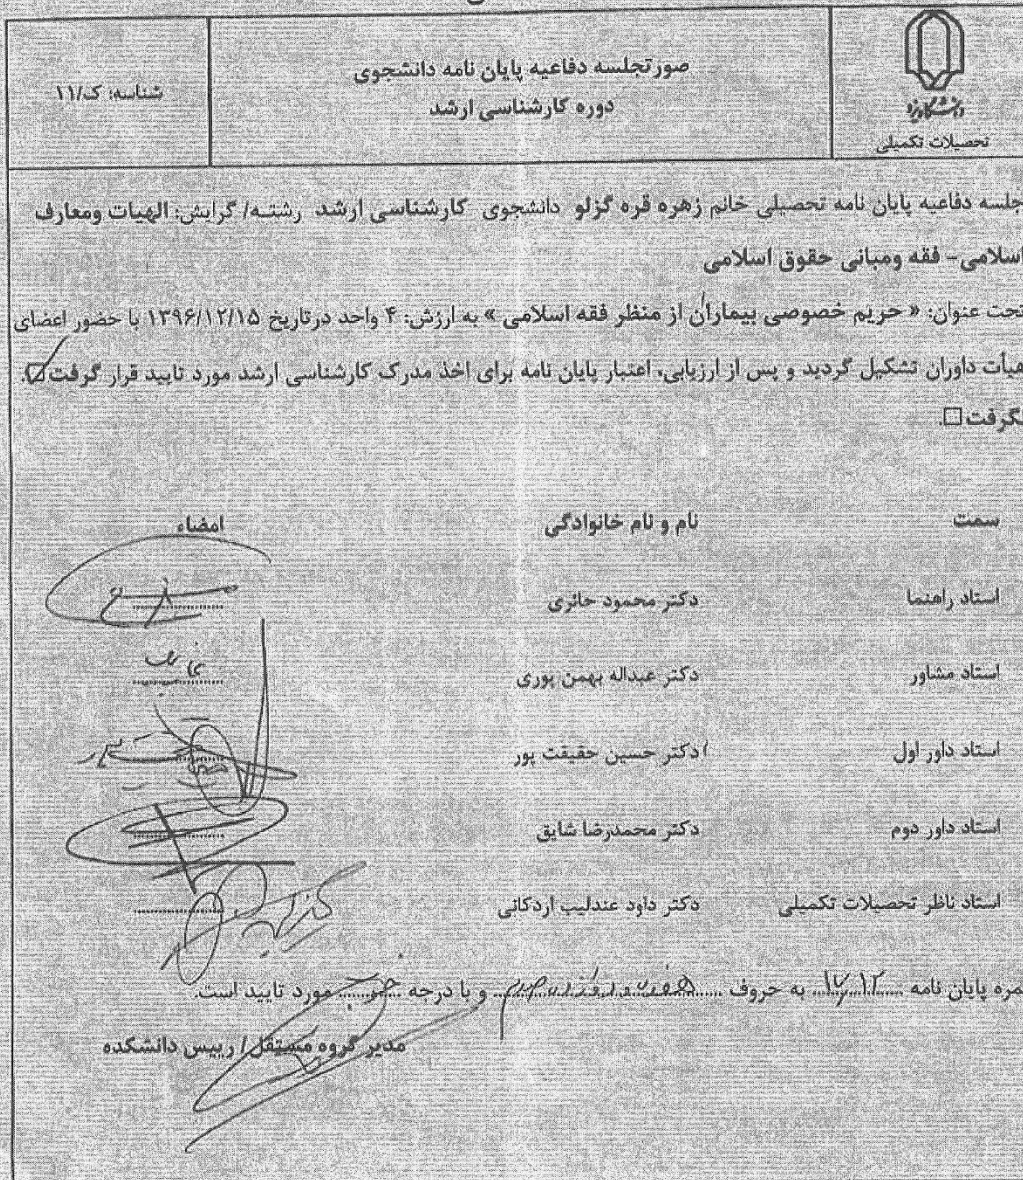 دانشگاه یزد
تحصیلات تکمیلی
صورتجلسه دفاعیه پایان نامه دانشجوی
دوره کارشناسی ارشد
شناسه: ک/۱۱
جلسه دفاعیه پایان نامه تحصیلی خانم زهره قره گزلو دانشجوی کارشناسی ارشد رشته/ گرایش: الهیات ومعارف
اسلامی- فقه ومبانی حقوق اسلامی
تحت عنوان: « حریم خصوصی بیماران از منظر فقه اسلامی » به ارزش: ۴ واحد درتاریخ ۱۳۹۶/۱۲/۱۵ با حضور اعضای
هیأت داوران تشکیل گردید و پس از ارزیابی، اعتبار پایان نامه برای اخذ مدرک کارشناسی ارشد مورد تایید قرار گرفت☑.
نگرفت□.
سمت نام و نام خانوادگی امضاء
استاد راهنما دکتر محمود حائری
استاد مشاور دکتر عبداله بهمن پوری
استاد داور اول دکتر حسین حقیقت پور
استاد داور دوم دکتر محمدرضا شایق
استاد ناظر تحصیلات تکمیلی دکتر داود عندلیب اردکانی
نمره پایان نامه ........ به حروف ........ و با درجه ........ مورد تایید است.
مدیر گروه مستقل/ رییس دانشکده